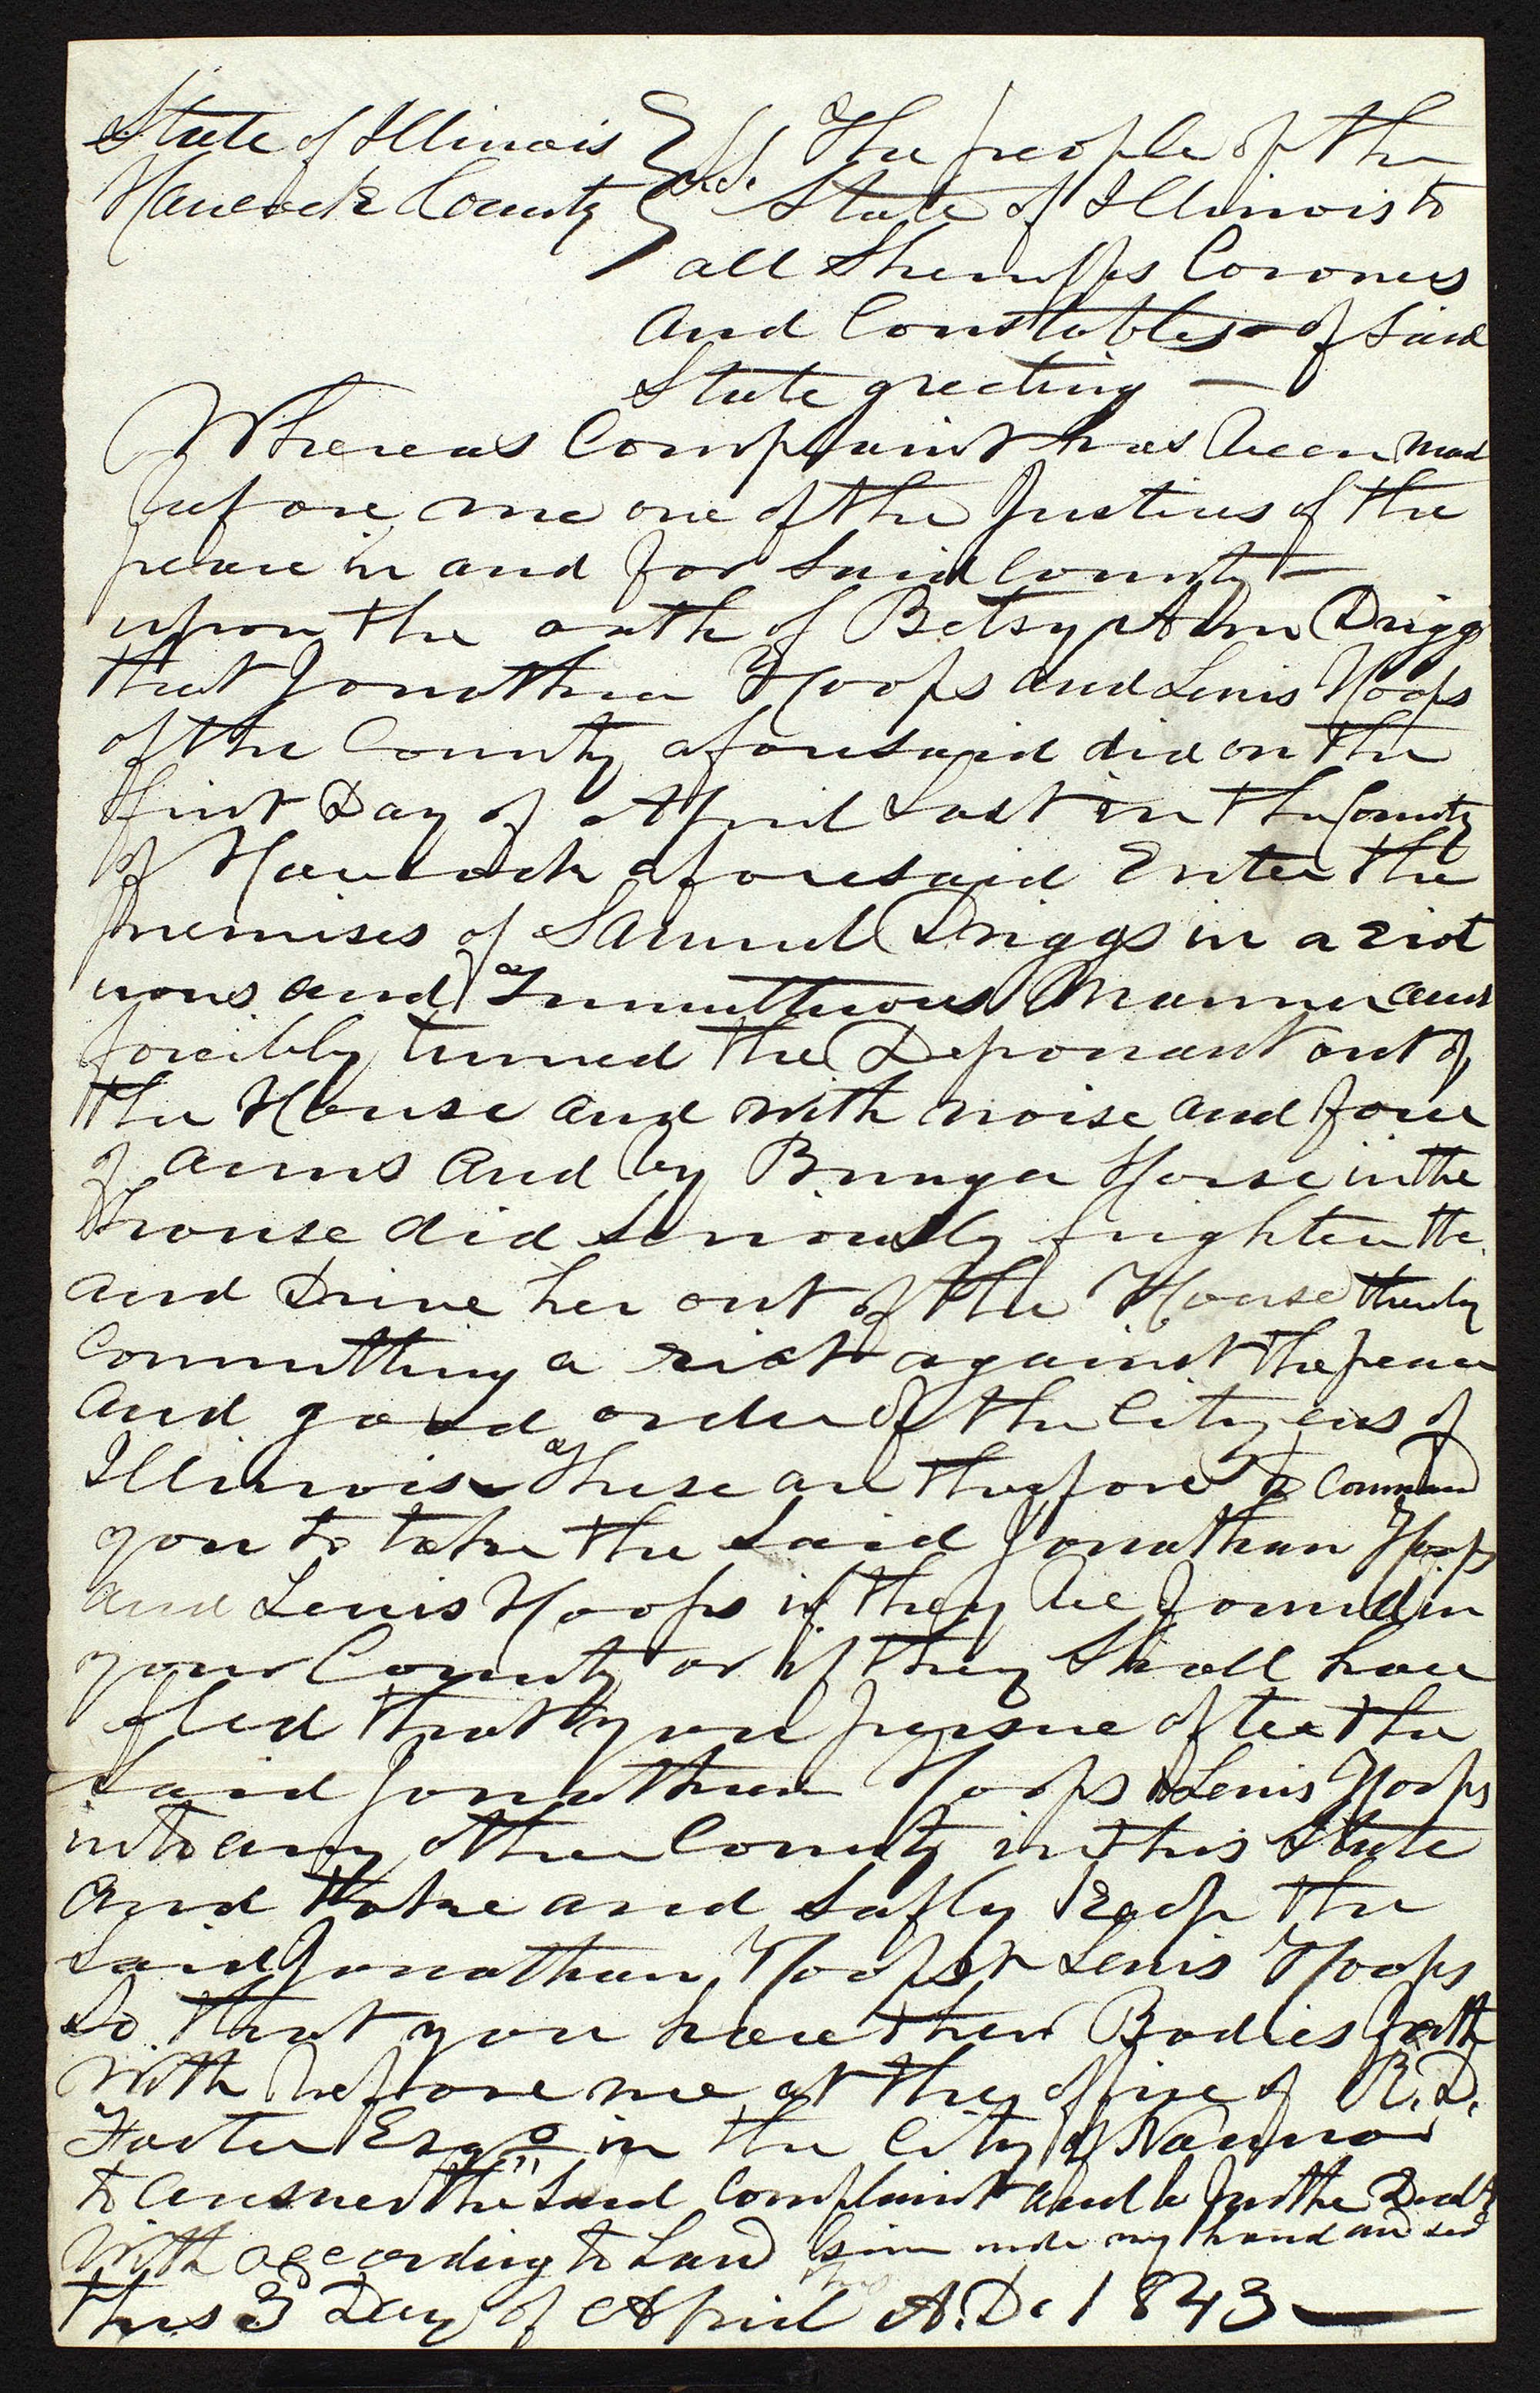 State of Illinois } S.S. The people of the
Hancock County } State of Illinois to
all Sheriffs Coroners
and Constables of said
State greeting —
Whereas Complaint has been mad
before me one of the Justices of the
peace in and for said County —
upon the oath of Betsy Ann Driggs
that Jonathan Hoops and Lewis Hoops
of the County aforesaid did on the
first Day of April Last in the County
of Hancock aforesaid Enter the
premises of Samuel Driggs in a riot
uous and Tumultuous Manner and
forcibly turned the Deponant out of
the House and with noise and force
of arms and by Bringa Horse in the
house did seriously frighten the
and Drive her out of the House thereby
Committing a riot against the peace
and good order of the Cityzens of
Illinois These are therefore to Command
you to take the said Jonathan Hoops
and Lewis Hoops if they be found in
your County or if they shall have
fled that you persue after the
said Jonathan Hoops & Lewis Hoops
into any other County in this State
and take and safly keep the
said Jonathan Hoops & Lewis Hoops
So that you have their Bodies forth
with before me at the office of R. D.
Foster Esqr in the City of Nauvoo
to answer the said Complaint and be further Dealt
with according to Law Given under my hand and seal
this 3 Day of April A.D. 1843 —